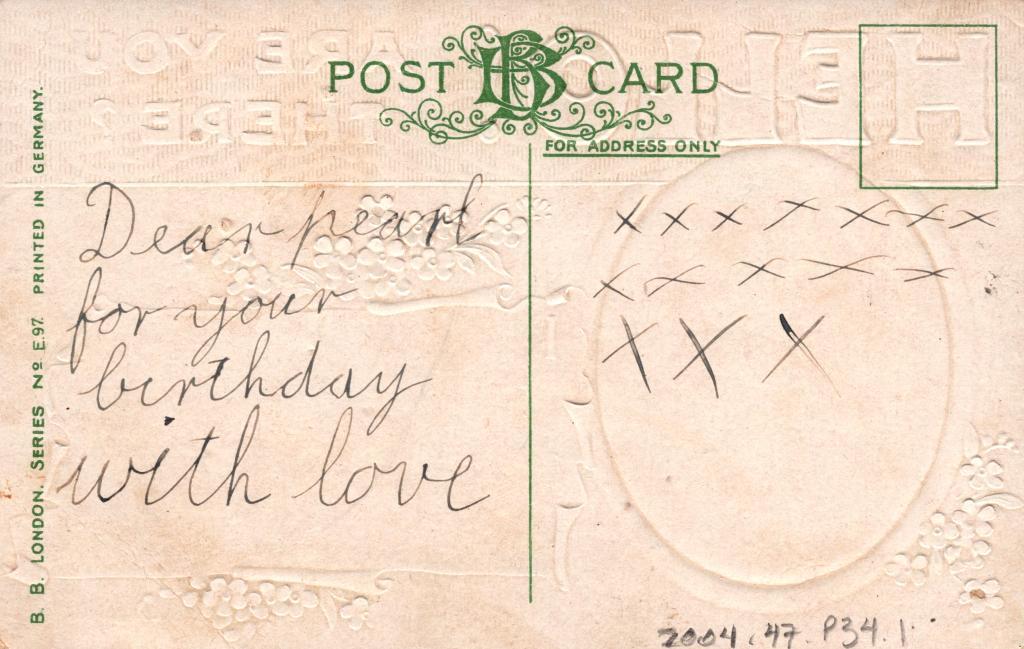 HELLO! ARE YOU
THERE?
POST BB CARD
FOR ADDRESS ONLY
B. B. LONDON. SERIES Nº E.97. PRINTED IN GERMANY.
Dear pearl
for your
birthday
with love
X X X X X X X
X X X X X
X X X
2004.47.P34.1